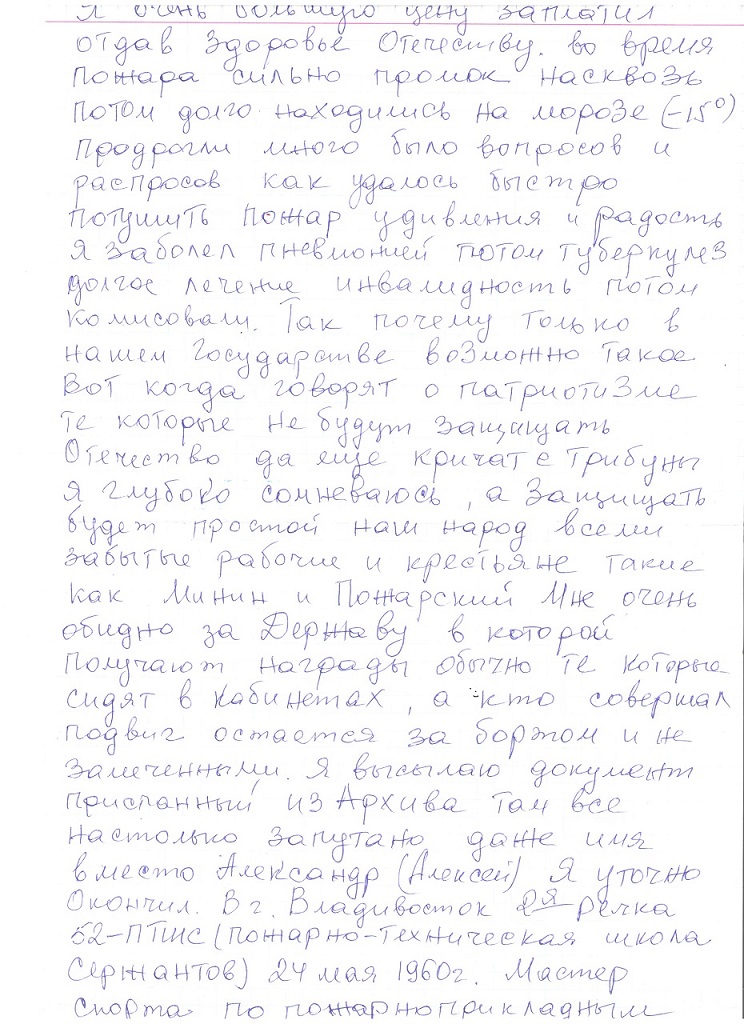 Я очень большую цену заплатил
отдав здоровье Отечеству. во время
пожара сильно промок насквозь
потом долго находились на морозе (-15º)
Продрогли много было вопросов и
распросов как удалось быстро
потушить пожар удивления и радость
я заболел пневмонией потом туберкулез
долгое лечение инвалидность потом
комисовали. Так почему только в
нашем Государстве возможно такое.
Вот когда говорят о патриотизме
те которые не будут защищать
Отечество да еще кричат с трибуны
я глубоко сомневаюсь, а защищать
будет простой наш народ всеми
забытые рабочие и крестьяне такие
как Минин и Пожарский Мне очень
обидно за Державу в которой
получают награды обычно те которые
сидят в кабинетах, а кто совершал
подвиг остается за бортом и не
замеченными. Я высылаю документ
присланный из Архива там все
настолько запутано даже имя
вместо Александр (Алексей) Я уточню
Окончил. В г. Владивосток 2я речка
52-ПТШС (пожарно-техническая школа
Сержантов) 24 мая 1960г. Мастер
спорта по пожарноприкладным